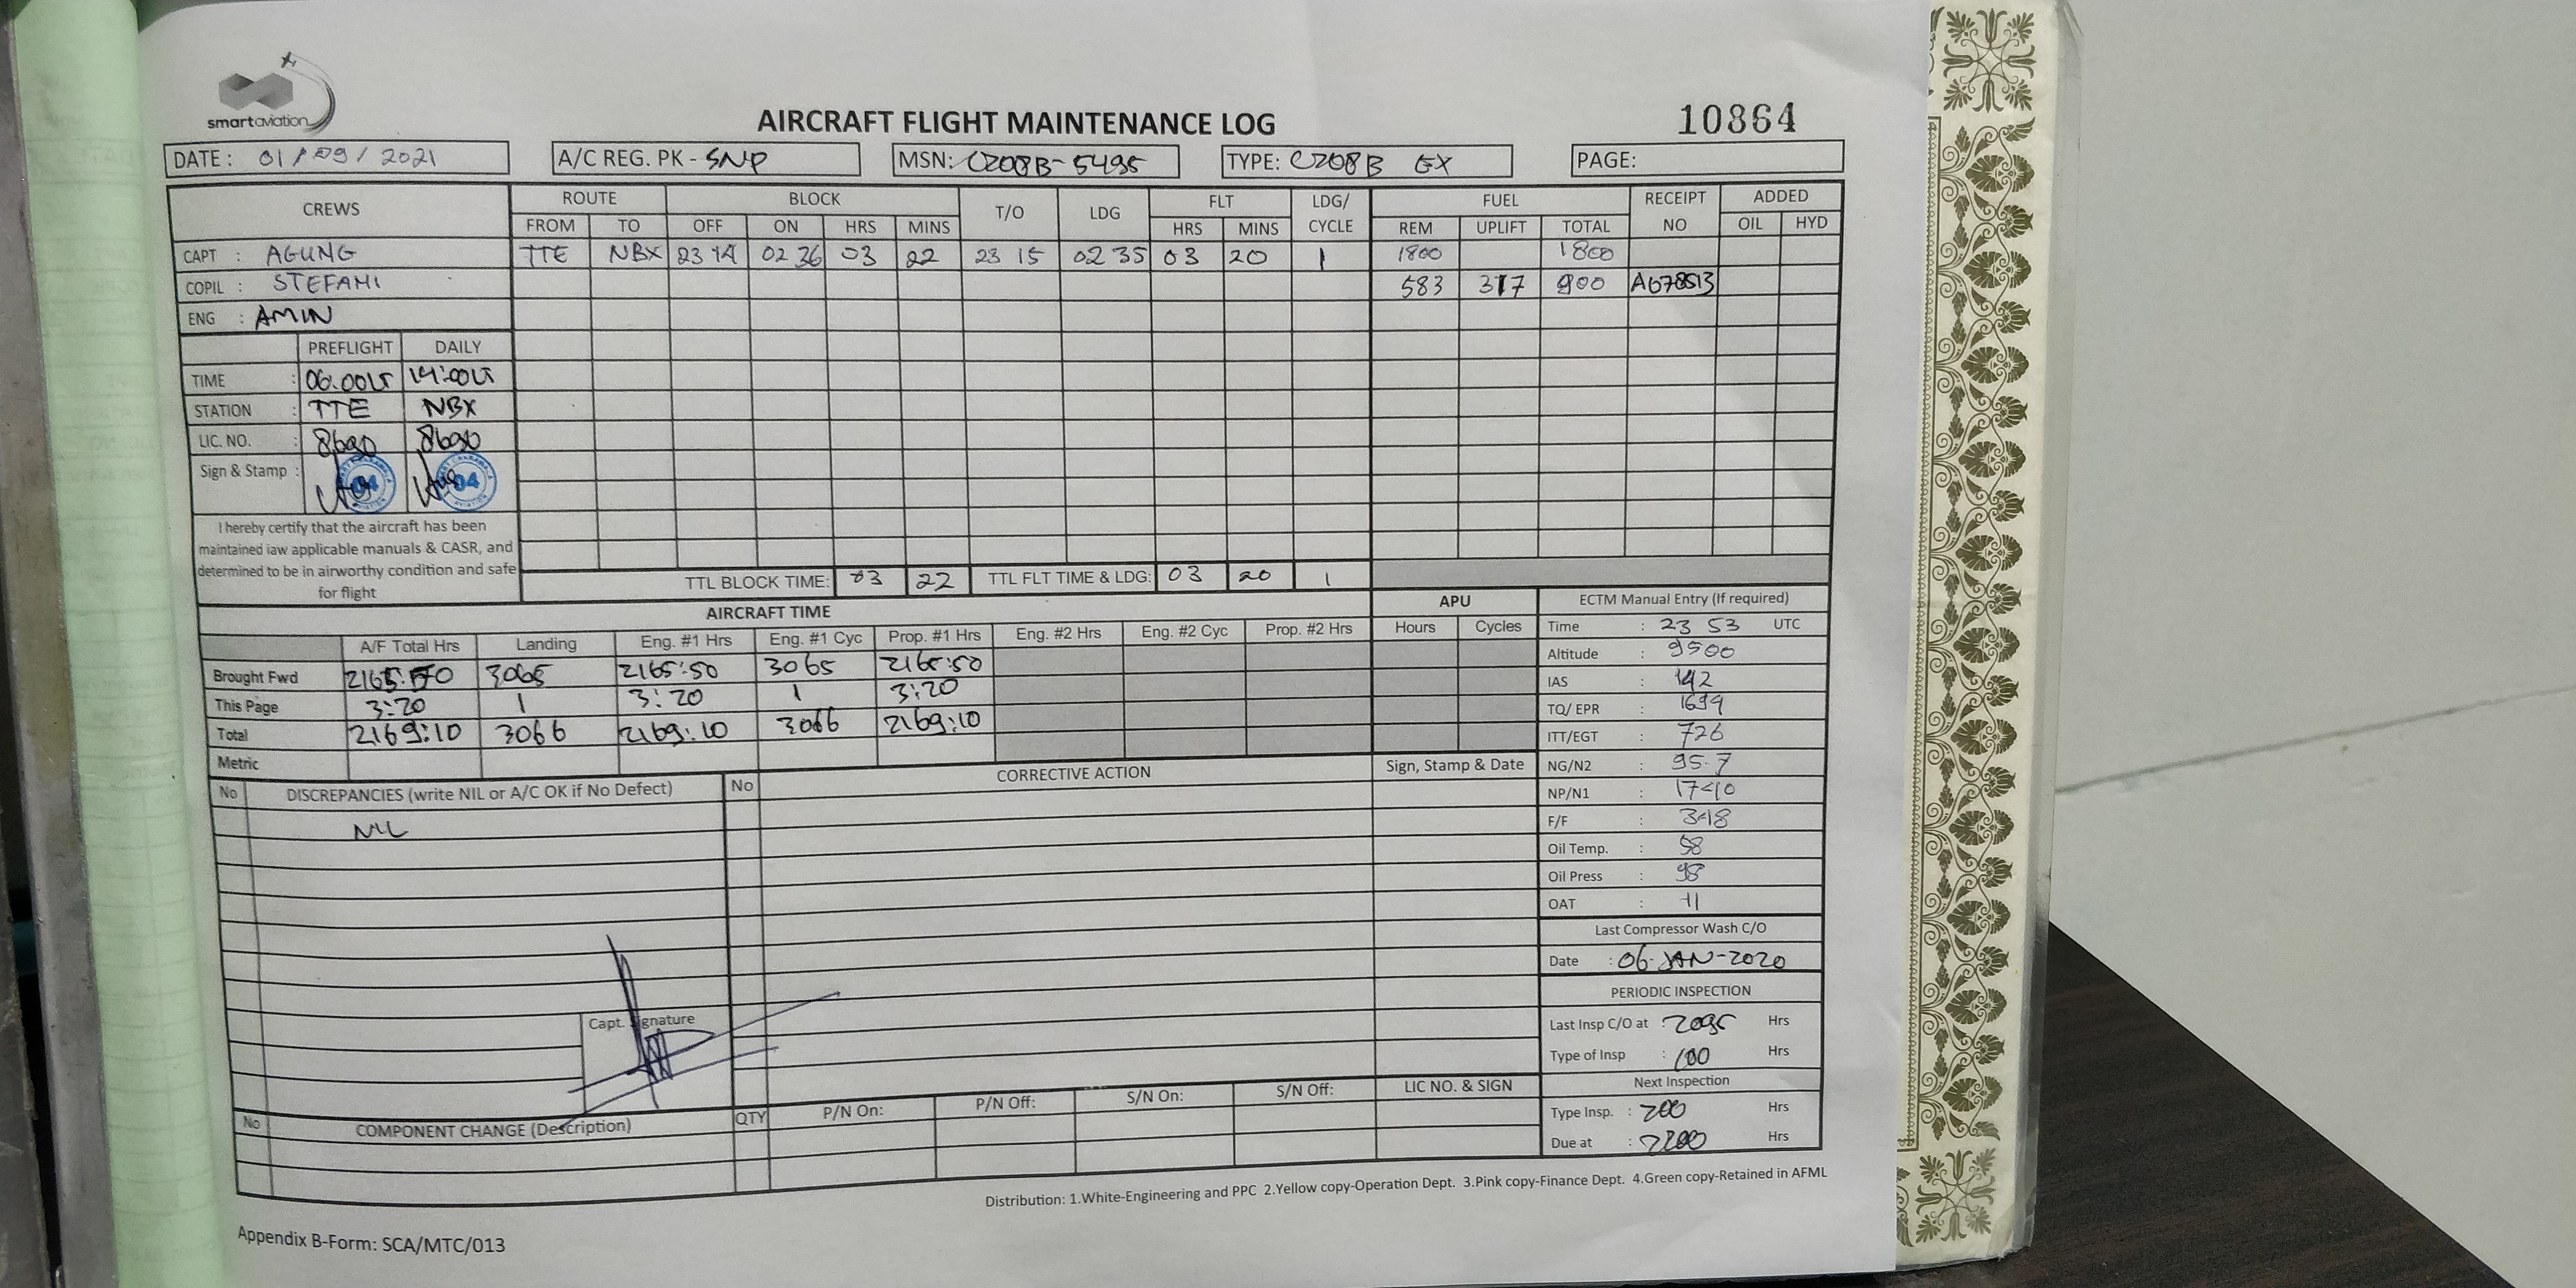 smart aviation
AIRCRAFT FLIGHT MAINTENANCE LOG
10864
DATE: 01/09/2021 A/C REG. PK - SNP MSN: C208B-5495 TYPE: C208B EX PAGE:
CREWS ROUTE BLOCK T/O LDG FLT LDG/ CYCLE FUEL RECEIPT NO ADDED
FROM TO OFF ON HRS MINS HRS MINS REM UPLIFT TOTAL OIL HYD
CAPT : AGUNG TTE NBX 23 14 02 36 03 22 23 15 02 35 03 20 1 1800 1800
COPIL : STEFANI 583 317 900 A678513
ENG : AMIN
PREFLIGHT DAILY
TIME : 06.00LT 14:00LT
STATION : TTE NBX
LIC. NO. : 8690 8690
Sign & Stamp : 04 04
I hereby certify that the aircraft has been
maintained iaw applicable manuals & CASR, and
determined to be in airworthy condition and safe
for flight
TTL BLOCK TIME: 03 22 TTL FLT TIME & LDG: 03 20 1
AIRCRAFT TIME APU
A/F Total Hrs Landing Eng. #1 Hrs Eng. #1 Cyc Prop. #1 Hrs Eng. #2 Hrs Eng. #2 Cyc Prop. #2 Hrs Hours Cycles
Brought Fwd 2165:50 3065 2165:50 3065 2165:50
This Page 3:20 1 3:20 1 3:20
Total 2169:10 3066 2169:10 3066 2169:10
Metric
ECTM Manual Entry (If required)
Time : 23 53 UTC
Altitude : 9500
IAS : 142
TQ/ EPR : 1694
ITT/EGT : 726
NG/N2 : 95.7
NP/N1 : 1740
F/F : 348
Oil Temp. : 58
Oil Press : 98
OAT : 11
Last Compressor Wash C/O
Date : 06-JAN-2020
PERIODIC INSPECTION
Last Insp C/O at : 2095 Hrs
Type of Insp : 100 Hrs
Next Inspection
Type Insp. : 200 Hrs
Due at : 2200 Hrs
No DISCREPANCIES (write NIL or A/C OK if No Defect) No CORRECTIVE ACTION Sign, Stamp & Date
NIL
Capt. Signature
No COMPONENT CHANGE (Description) QTY P/N On: P/N Off: S/N On: S/N Off: LIC NO. & SIGN
Distribution: 1.White-Engineering and PPC 2.Yellow copy-Operation Dept. 3.Pink copy-Finance Dept. 4.Green copy-Retained in AFML
Appendix B-Form: SCA/MTC/013